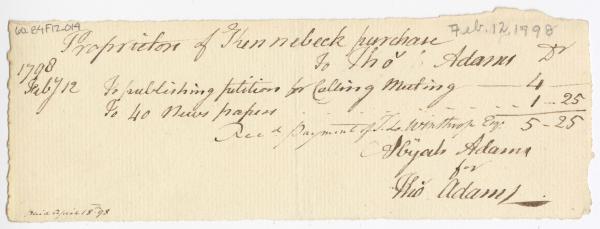 60.E4F12.014
Feb. 12, 1798
Proprietors of Kennebeck purchase
To Thos Adams Dr
1798
Feby 12 To publishing petition for Calling Meeting — 4
To 40 News papers 1 - 25
Recd payment of T. L. Winthrop Esqr 5 - 25
Abijah Adams
for
Thos Adams
Paid April 18th 98